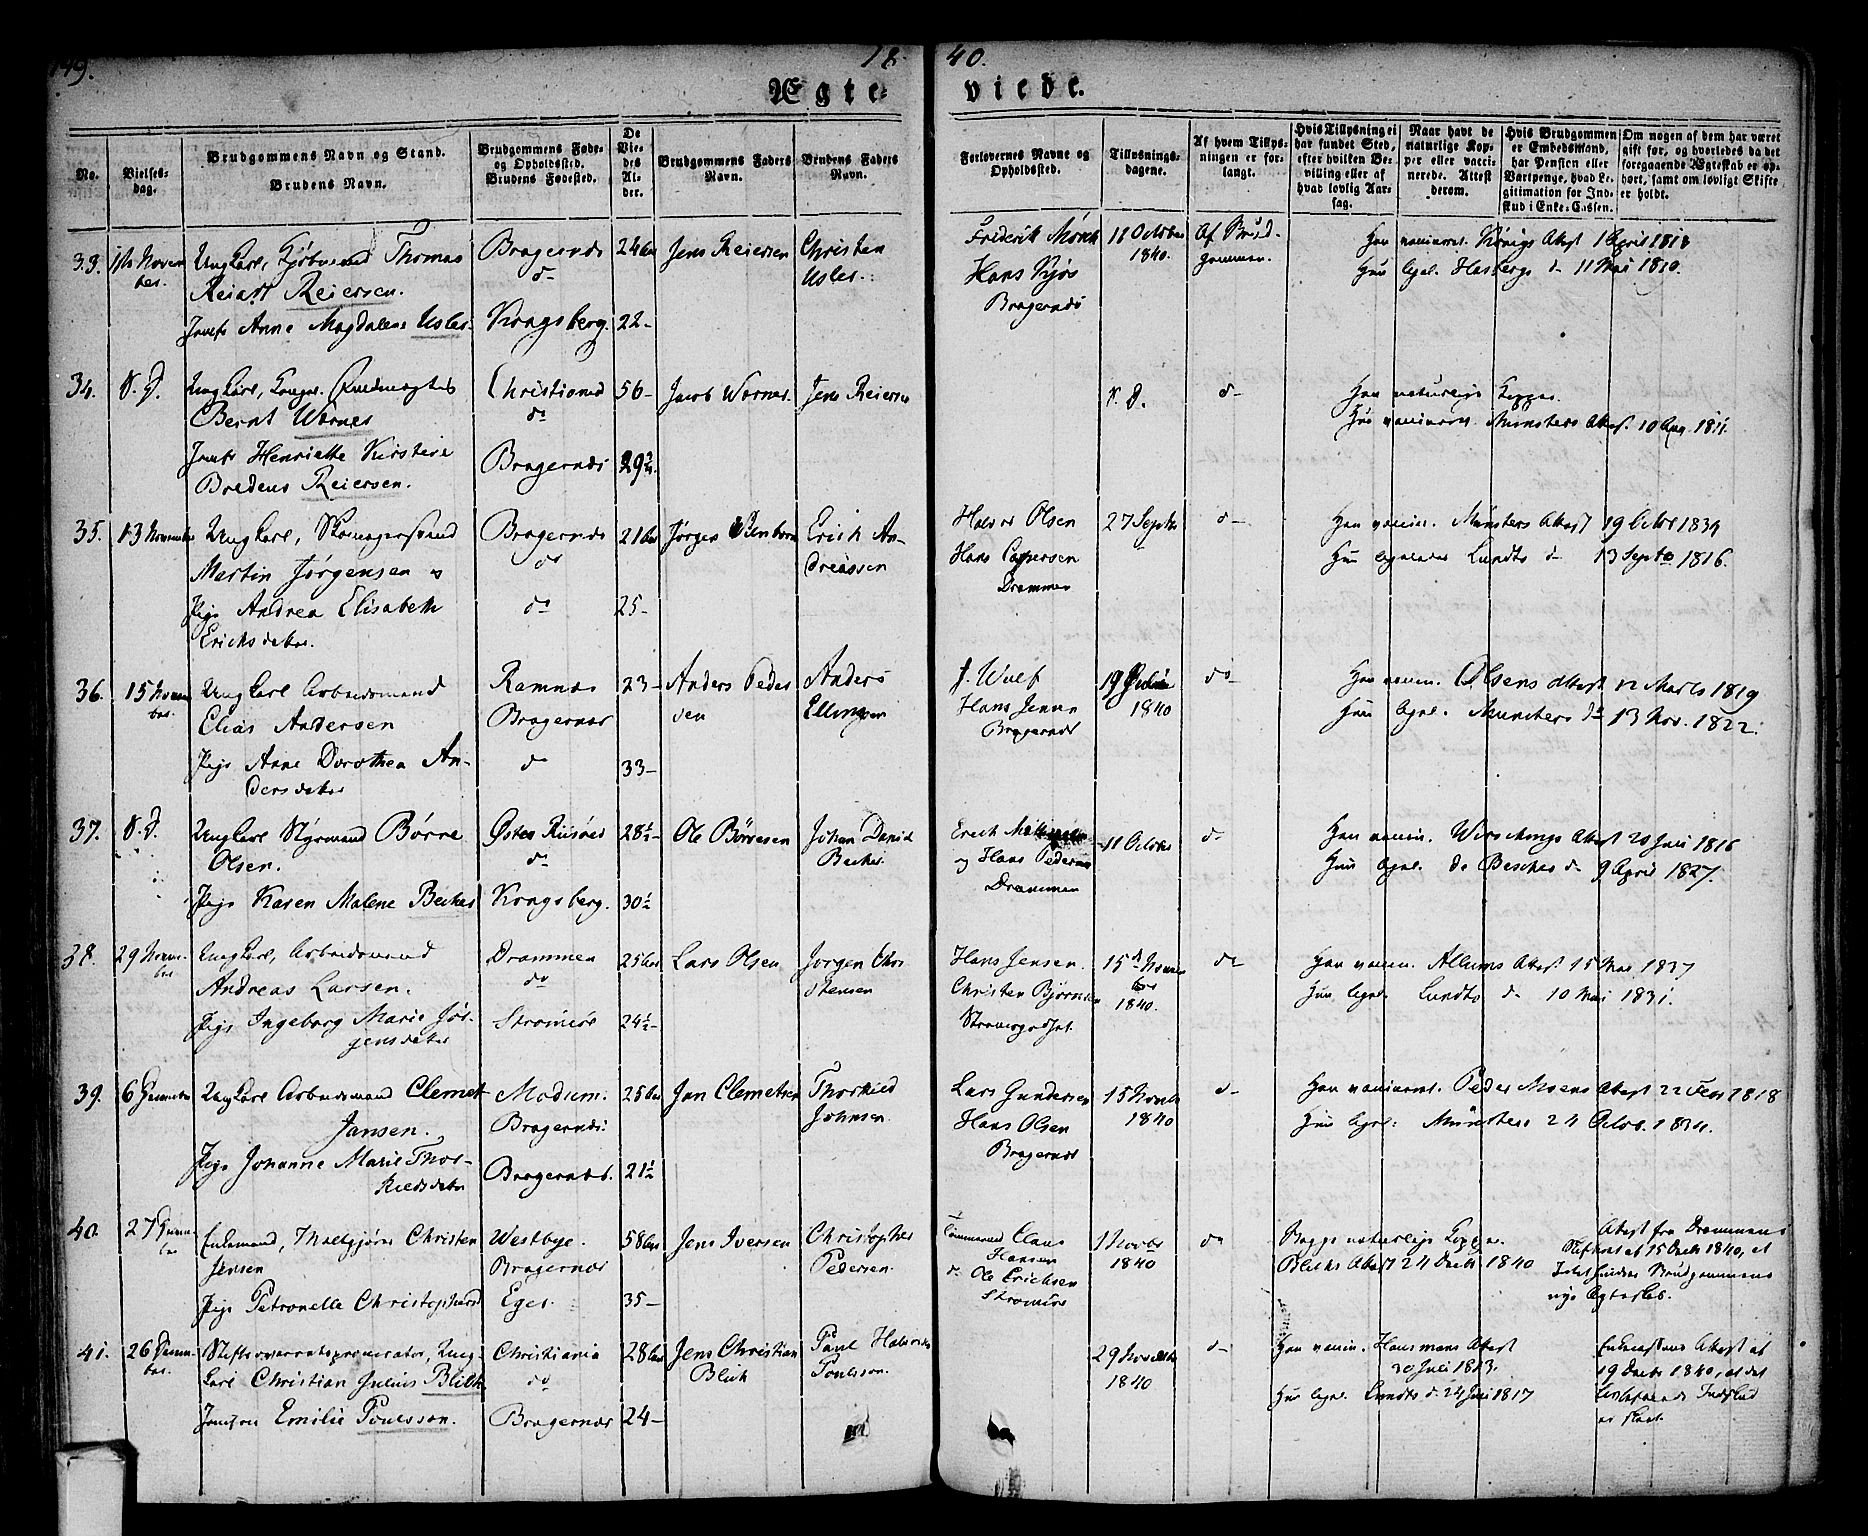 149.
18
40.
Ægte-
viede.
No.
Vielses-
dag.
Brudgommens Navn og Stand.
Brudens Navn.
Brudgommens Føde-
og Opholdssted.
Brudens Fødested.
De
Vie-
des
Al-
der.
Brudgommens Faders
Navn.
Brudens Faders
Navn.
Forlovernes Navne og
Opholdssted.
Tillysnings-
dagene.
Af hvem Tillys-
ningen er for-
langt.
Hvis Tillysning ei
har fundet Sted,
efter hvilken Be-
villing eller af
hvad lovlig Aar-
sag.
Naar havt de
naturlige Kop-
per eller vacci-
nerede. Attest
derom.
Hvis Brudgommen
er Embedsmand,
har Pension eller
Vartpenge, hvad Le-
gitimation for Ind-
skud i Enke-Cassen.
Om nogen af dem har været
gift før, og hvorledes da det
foregaaende Ægteskab er op-
hørt, samt om lovligt Skifte
er holdt.
33.
Ungkarl, Thomas
Reiart Reiersen.
Anne Magdalene Usler
Bragernæs
do
Kongsberg.
24
22-
Jens Reiersen
Christen
Usler.
Frederik Monk
Hans Kjøs
Bragernæs
11 October
1840.
Af Brud-
gommen.
Attest 1 April 1818
11 Mai 1830.
34.
S. D.
Ungkarl,
Bernt Wornes
Henriette Kirstine
Bredens Reiersen.
Christiansand
do
Bragernæs
56-
29
Jacob Wornes.
Jens Reiersen
S. D.
do
Han naturlige Kopper.
Hun vaccineret. Münsters Attest 10 Aug. 1811.
35.
13 November
Ungkarl, Skomagersvend
Martin Jørgensen
Pige Andrea Elisabeth
Erichsdatter.
Bragernæs
do
do
21
25-
Jørgen
Erich An-
dreassen
Halvor Olsen
Hans Caspersen
Drammen
27 Septbr
do
Han vaccin. Münsters Attest 19 Octbr 1839
Hun Lundts do 13 Septbr 1816.
36.
15 Novem-
ber.
Ungkarl Arbeidsmand
Elias Andersen
Pige Anne Dorothea An-
dersdatter
Ramnæs
Bragernæs
do
23-
33-
Anders Peder-
sen
Anders
Ellingsen
J. Wulf
Hans Jensen
Bragernæs
19
1840
do
Han vaccin. Olsens Attest 12 Marts 1819
Hun Münsters do 13 Nov. 1822.
37.
S. D.
Ungkarl Styrmand Børre
Olsen.
Pige Karen Malene Becker
Øster Riisøer
do
Kongsberg.
28½-
30½
Ole Børresen
Johan Daniel
Becker.
Erich
og Hans Pedersen
Drammen
11 October
do
Han vaccin. Attest 20 Juni 1816
Hun do 9 April 1827.
38.
29 Novem-
ber
Ungkarl, Arbeidsmand
Andreas Larsen.
Pige Ingeborg Marie Jør-
gensdatter
Drammen
do
Strømsøe
25
24½-
Lars Olsen
Jørgen Chri-
stensen
Hans Jensen.
Christen Bjørnsen
Strømsgodset.
15 Novem-
ber
1840.
do
Han vaccin. Allums Attest 15 Mai 1837
Hun Lundts do 10 Mai 1831.
39.
6 December
Ungkarl Arbeidsmand Clemet
Jansen.
Pige Johanne Marie Thor-
kildsdatter
Modum.
Bragernæs.
Bragernæs.
25
21½
Jan Clemetsen
Thorkild
Johnsen.
Lars Gundersen
Hans Olsen
Bragernæs
15 Novbr
1840
do
Han vaccineret. Peder Moens Attest 22 Febr 1818
Hun Münsters 24 Octbr. 1834.
40.
27 Decem-
ber
Enkemand, Christen
Jensen
Pige Petronelle Christophersd
Westbye.
Bragernæs
Eger.
58
35-
Jens Iversen
Christopher
Pedersen.
Claus
Hansen
do Ole Erichsen
Strømsøe
1 Novbr
1840
do
Begge naturlige Kopper.
Blichs Attest 24 Decbr 1840
Attest fra Drammens
Skifteret af 15 Decbr 1840, at
Intet hindrer Brudgommens
nye Ægteskab.
41.
26 Decem-
ber.
Stiftsoverretsprocurator, Ung-
karl Christian Julius Blich
Jomfru Emilie Poulsson.
Christiania
do
Bragernæs
28
24-
Jens Christian
Blich
Paul Halvor
Poulsson.
29 Novbr
1840
do
Han vaccin. Attest
30 Juli 1813.
Hun Lundts d. 24 Juni 1817
Enkecassens Attest af
19 Decbr 1840, at det
Indskud
er skeet.